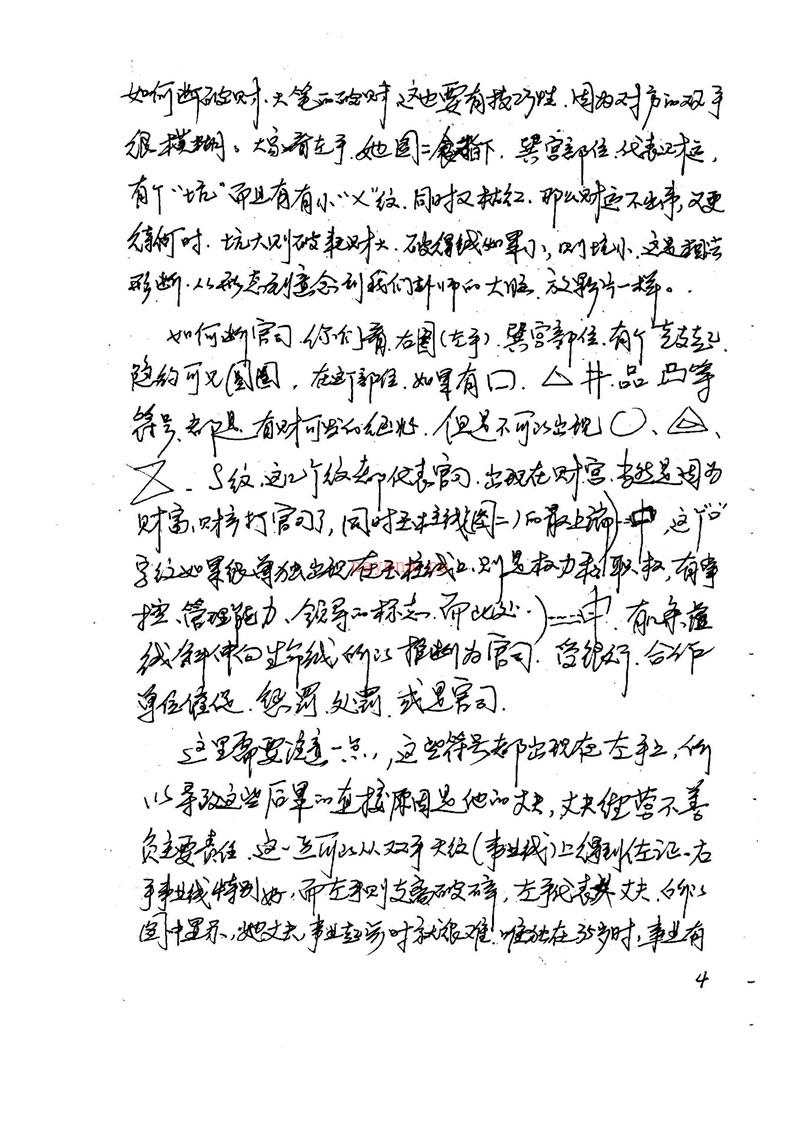 如何断破财.大笔的破财这也要有技巧性.因为对方的双手
很模糊。大家看左手.她图二食指下.巽宫部位.代表财运,
有个“坑”而且有有小“X”纹.同时又粘红.那么财运不出事,又更
待何时.坑大则破耗财大.破得钱如果小,则坑小.这是相法
形断.从形态到意念到我们卦师的大脑.放影片一样。
如何断官司.你们看.右图(左手).巽宫部位.有个鼓起
隐约可见圆圈,在这部位.如果有口.△井.品凸等
符号.都是有财可发的纽.但是不可以出现〇、
S纹.这几个纹都代表官司.出现在财宫.当然是因为
财富、财产打官司了,同时玉柱线(图二)的最上端)中,这个“口”
字纹如果很单独出现在玉柱线上.则是权力和职权,有掌
控、管理能力、领导的标志.而此处.)中.有几条直
线斜伸向生命线所以推断为官司.受银行.合作
单位催促.惩罚.处罚.或是官司.
这里需要注意一点,这些符号都出现在左手上,所
以导致这些后果的直接原因是他的丈夫,丈夫经营不善
负主要责任.这一点可以从双手天纹(事业线)上得到佐证.右
手事业线特别好,而左手则支离破碎,左手代表其丈夫.所以
图中显示,她丈夫,事业起步时就很难.唯独在35岁时,事业有
4